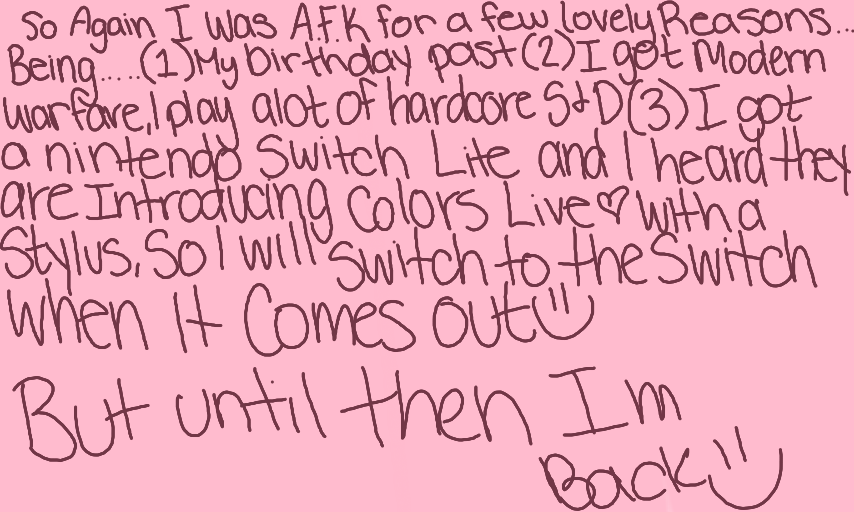 So Again I was A.F.K for a few lovely Reasons...
Being.....(1)My birthday past(2)I got Modern
warfare,I play alot of hardcore S&D(3)I got
a nintendo Switch Lite and I heard they
are Introducing Colors Live♡ With a
Stylus, So I will switch to the Switch
When It Comes out
But until then Im
Back